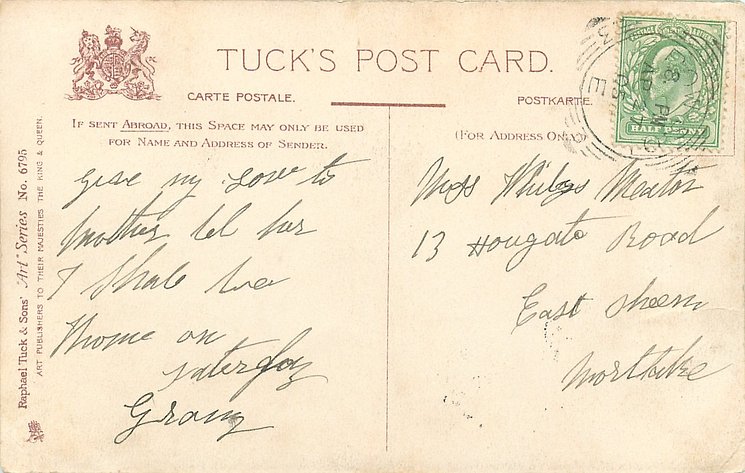 TUCK'S POST CARD.
CARTE POSTALE.
POSTKARTE.
IF SENT ABROAD, THIS SPACE MAY ONLY BE USED
FOR NAME AND ADDRESS OF SENDER.
(FOR ADDRESS ONLY.)
HALF PENNY
PM
AP
Raphael Tuck & Sons' "Art" Series No. 6795
ART PUBLISHERS TO THEIR MAJESTIES THE KING & QUEEN.
give my Love to
mother tel her
I Shale be
home on
saterday
Grany
Miss
13 Hougate Road
East Sheen
Mortlake